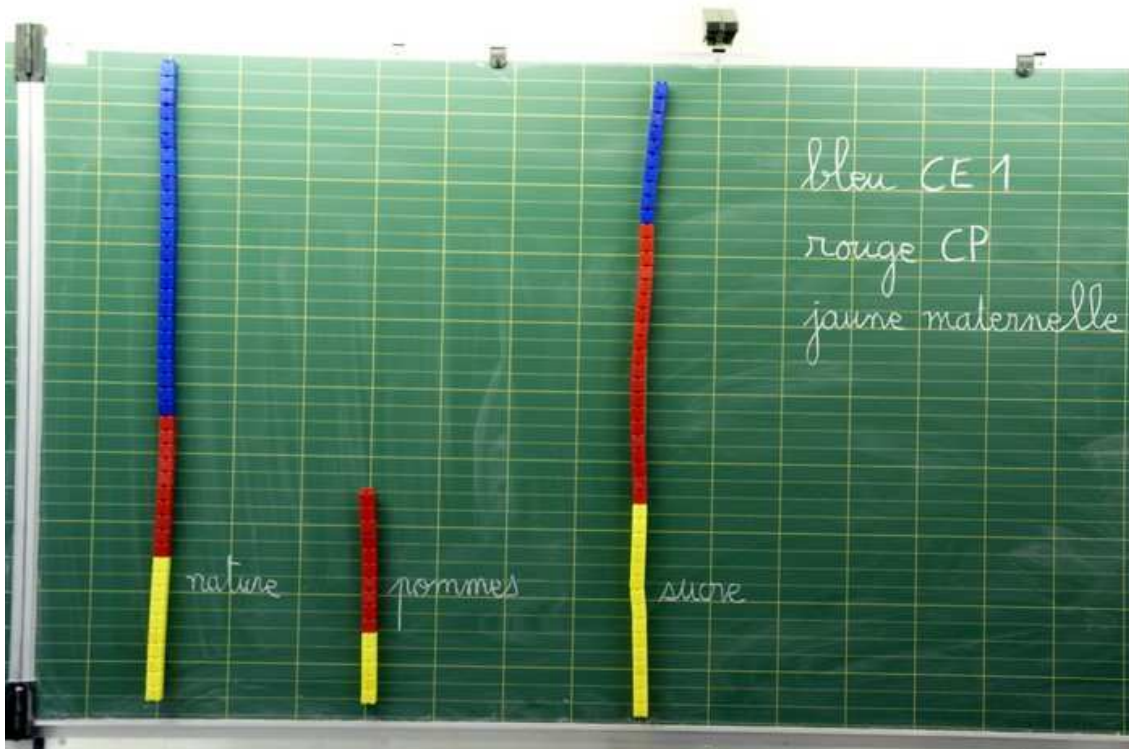 bleu CE 1
rouge CP
jaune maternelle
nature
pommes
sucre